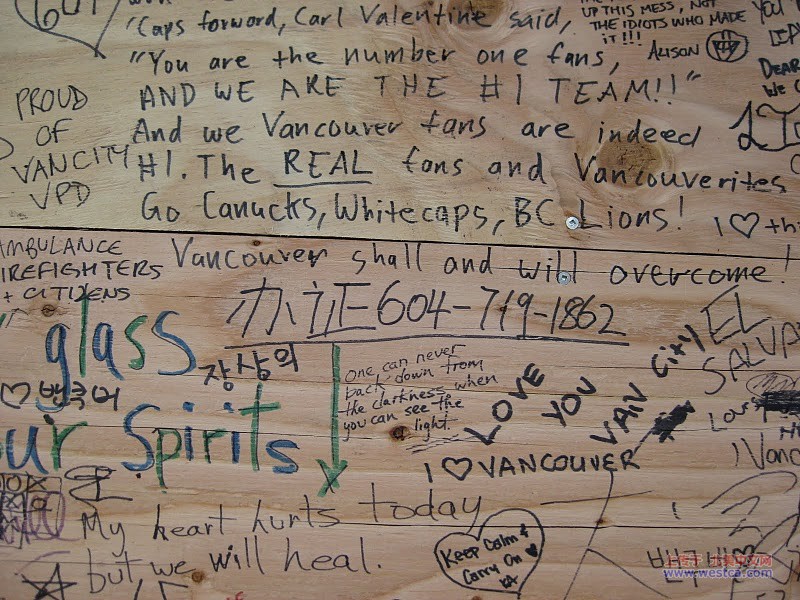 "Caps forward, Carl Valentine said,
"You are the number one fans,
AND WE ARE THE #1 TEAM!!"
And we Vancouver fans are indeed
#1. The REAL fans and Vancouverites
Go Canucks, Whitecaps, BC Lions!
Vancouver shall and will overcome!
UP THIS MESS, NOT
THE IDIOTS WHO MADE
IT!!!
ALISON
DEAR
WE
PROUD
OF
VANCITY
VPD
I ♡ th
AMBULANCE
FIREFIGHTERS
+ CITIZENS
办证604-719-1862
glass
장상의
our Spirits
One can never
back down from
the darkness when
you can see the
light.
LOVE
YOU
VAN City
EL
SALVA
I ♡ VANCOUVER
I Vanc
My heart hurts today
but we will heal.
Keep Calm &
Carry On
www.westca.com